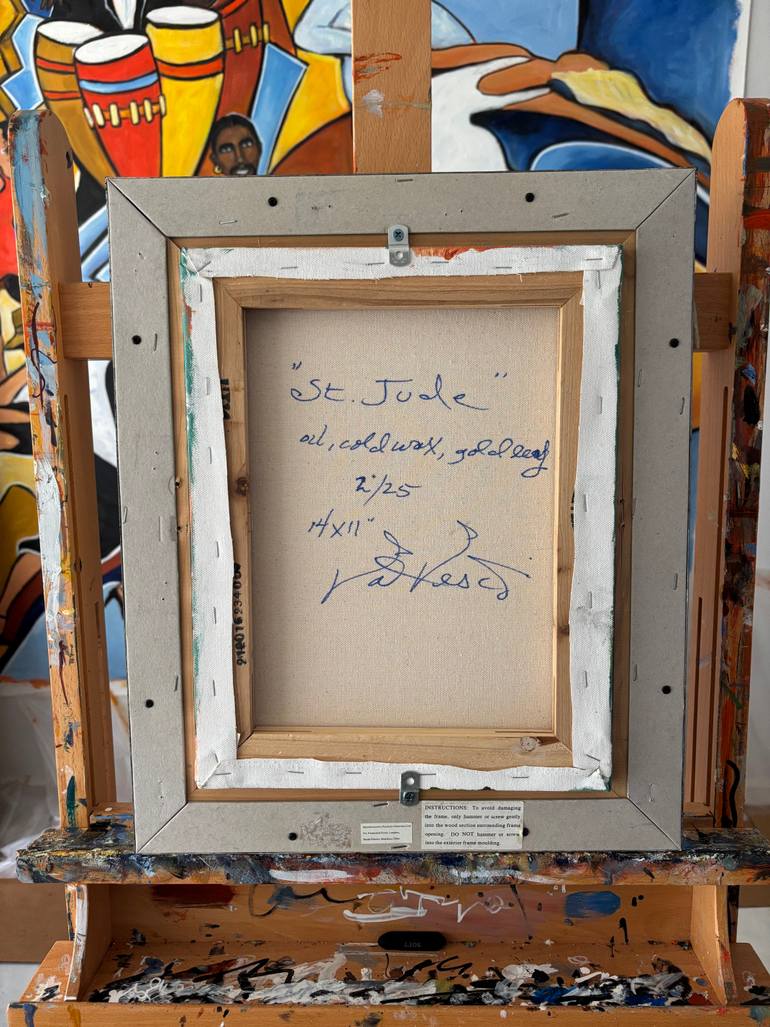 "St. Jude"
oil, cold wax, gold leaf
2/25
14x11"
INSTRUCTIONS: To avoid damaging
the frame, only hammer or screw gently
into the wood section surrounding frame
opening. DO NOT hammer or screw
into the exterior frame moulding.